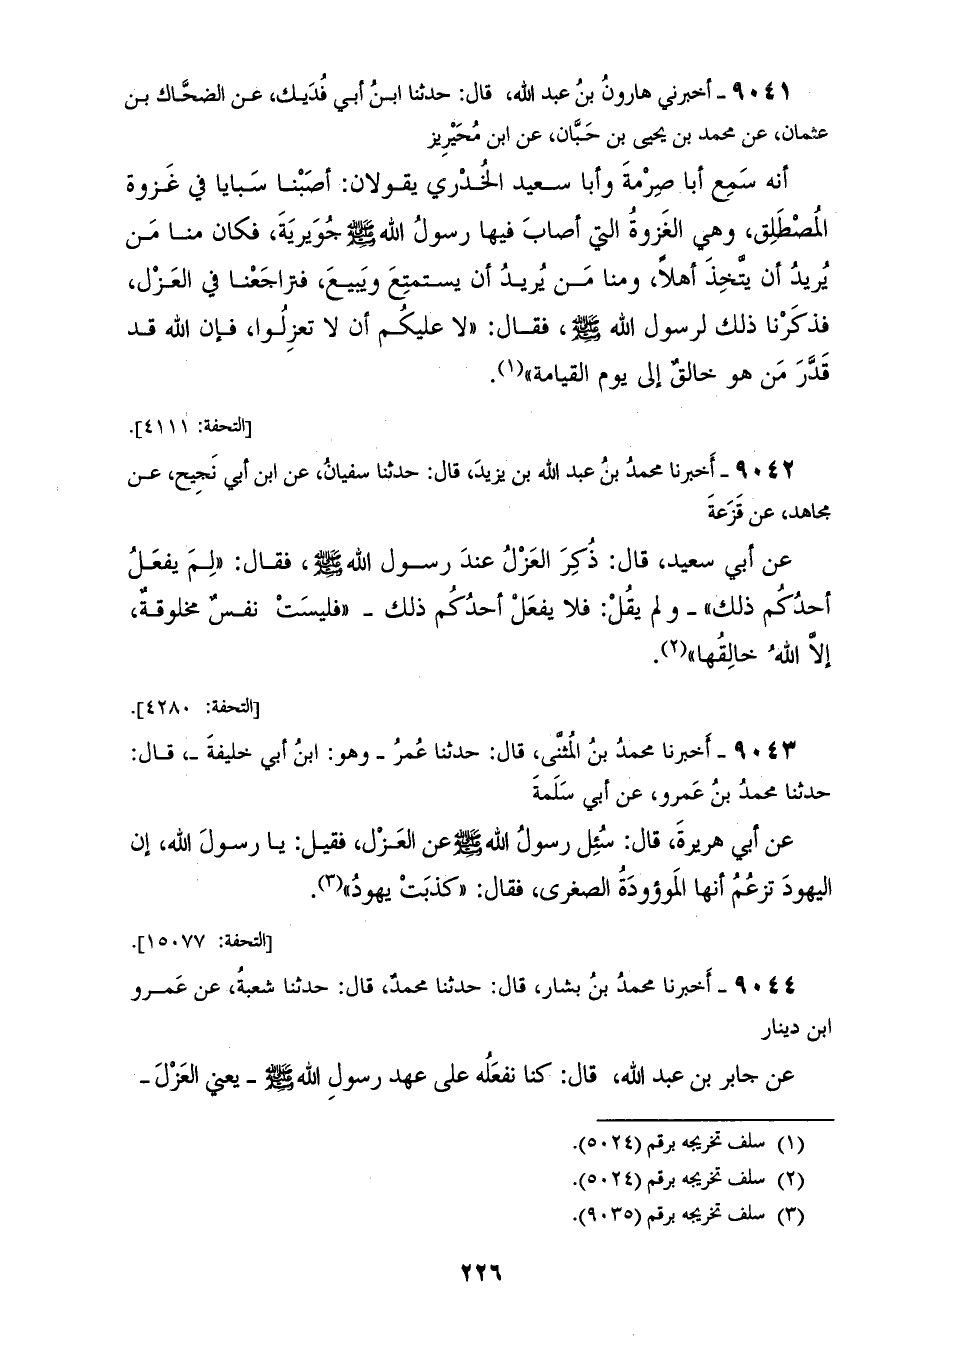 ٩٠٤١ ـ أخبرني هارونُ بنُ عبد الله، قال: حدثنا ابنُ أبي فُدَيك، عن الضحَّاك بن
عثمان، عن محمد بن يحيى بن حَبَّان، عن ابن مُحَيْرِيز
أنه سَمِع أبا صِرْمةَ وأبا سعيد الخُدْري يقولان: أصَبْنا سَبايا في غَزوة
المُصْطَلِق، وهي الغَزوةُ التي أصابَ فيها رسولُ الله ﷺ جُوَيريَةَ، فكان منا مَن
يُريدُ أن يتَّخِذَ أهلاً، ومنا مَن يُريدُ أن يستمتِعَ ويَبيعَ، فتراجَعْنا في العَزْل،
فذكَرْنا ذلك لرسول الله ﷺ، فقال: «لا عليكُم أن لا تعزِلُوا، فإن الله قد
قَدَّرَ مَن هو خالقٌ إلى يوم القيامة»(١).
[التحفة: ٤١١١].
٩٠٤٢ ـ أَخبرنا محمدُ بنُ عبد الله بن يزيدَ، قال: حدثنا سفيانُ، عن ابن أبي نَجِيح، عن
مجاهد، عن قَزَعةَ
عن أبي سعيد، قال: ذُكِرَ العَزْلُ عندَ رسول الله ﷺ، فقال: «لِمَ يفعَلُ
أحدُكُم ذلك» ـ ولم يقُلْ: فلا يفعَلْ أحدُكُم ذلك ـ «فليسَتْ نفسٌ مخلوقةٌ،
إلاَّ اللهُ خالِقُها»(٢).
[التحفة: ٤٢٨٠].
٩٠٤٣ ـ أَخبرنا محمدُ بنُ المُثنَّى، قال: حدثنا عُمرُ ـ وهو: ابنُ أبي خليفةَ ـ، قال:
حدثنا محمدُ بنُ عَمرو، عن أبي سَلَمةَ
عن أبي هريرةَ، قال: سُئِل رسولُ الله ﷺ عن العَزْل، فقيل: يا رسولَ الله، إن
اليهودَ تزعُمُ أنها المَوؤودَةُ الصغرى، فقال: «كذبَتْ يهودُ»(٣).
[التحفة: ١٥٠٧٧].
٩٠٤٤ ـ أَخبرنا محمدُ بنُ بشار، قال: حدثنا محمدٌ، قال: حدثنا شعبةُ، عن عَمرو
ابن دينار
عن جابر بن عبد الله، قال: كنا نفعَلُه على عهد رسولِ الله ﷺ ـ يعني العَزْلَ ـ
(١) سلف تخريجه برقم (٥٠٢٤).
(٢) سلف تخريجه برقم (٥٠٢٤).
(٣) سلف تخريجه برقم (٩٠٣٥).
٢٢٦